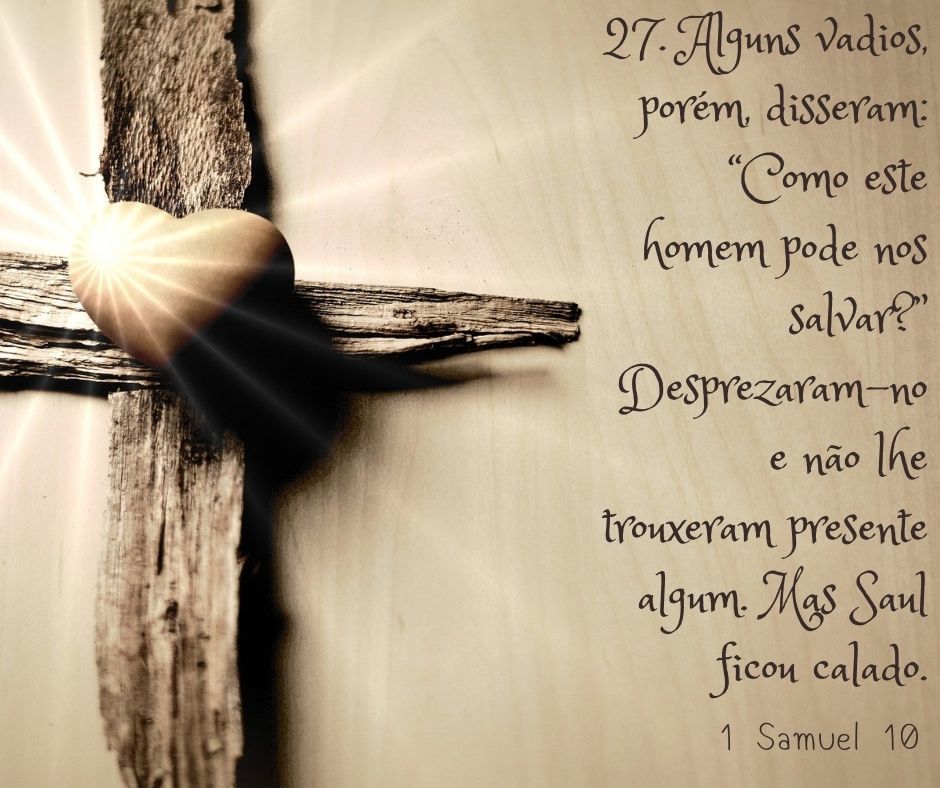 27. Alguns vadios,
porém, disseram:
“Como este
homem pode nos
salvar?”
Desprezaram-no
e não lhe
trouxeram presente
algum. Mas Saul
ficou calado.
1 Samuel 10